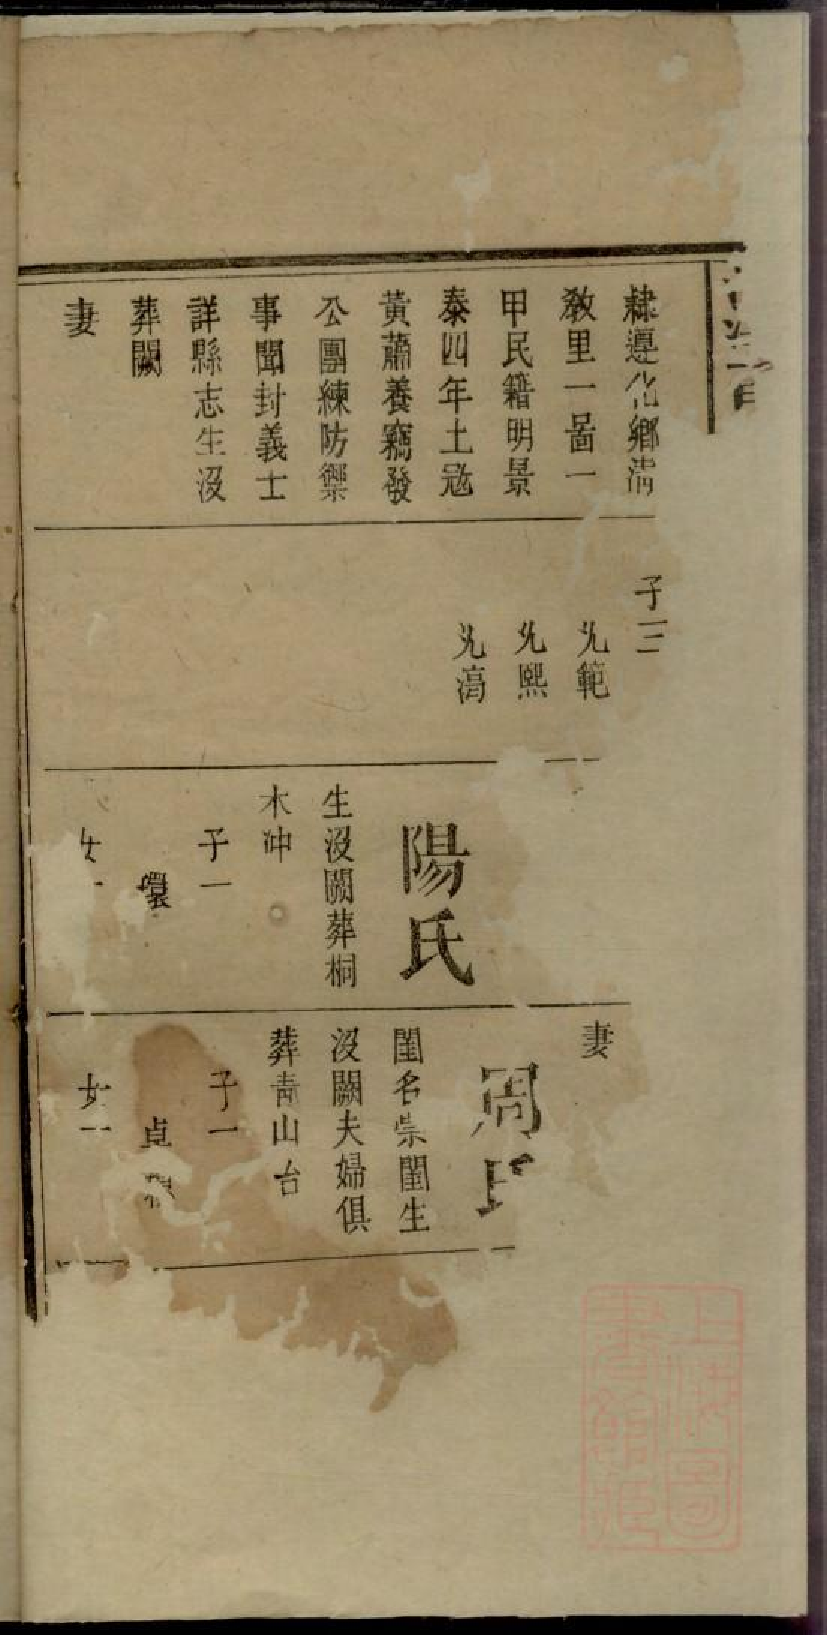 隸遵化鄉清
敎里一啚一
甲民籍明景
泰四年土寇
黃蕭養竊發
公團練防禦
事聞封義士
詳縣志生沒
葬闕
妻
子三
允範
允熙
允滈
陽氏
生沒闕葬桐
木冲
子一
女一
妻
周氏
閨名崇閨生
沒闕夫婦俱
葬靑山台
子一
卓
女一
上海圖
書館藏